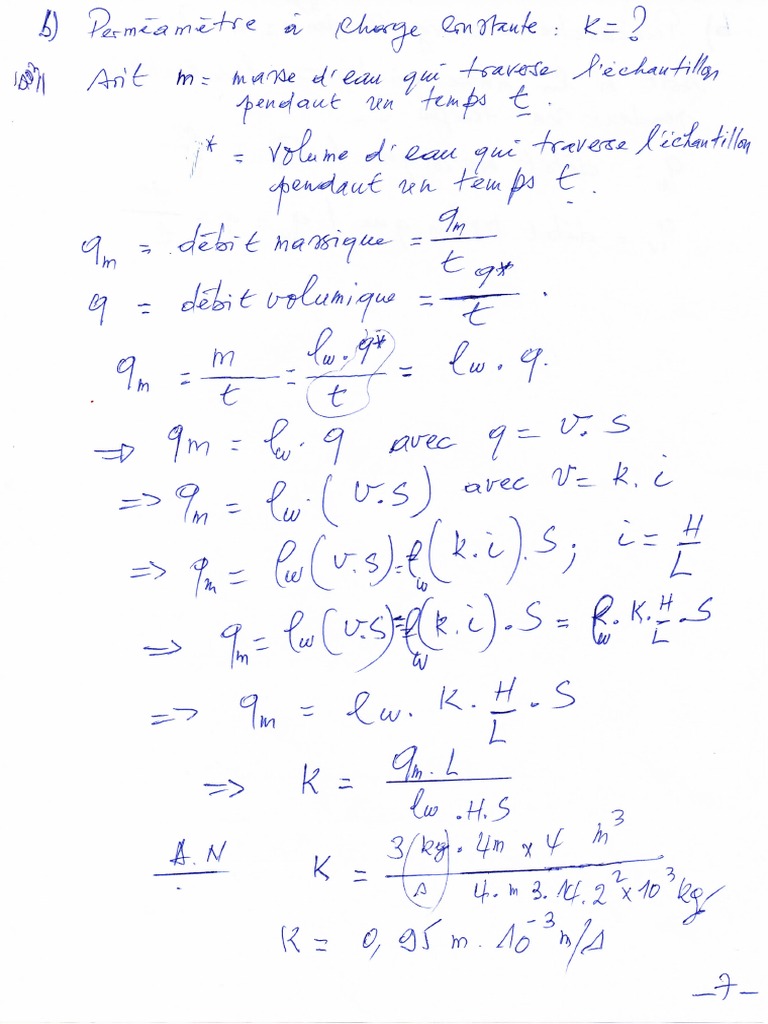 b) Perméamètre à charge constante : K = ?
Soit m = masse d'eau qui traverse l'échantillon
pendant un temps t.
* = volume d'eau qui traverse l'échantillon
pendant un temps t.
q_m = débit massique = q_m / t
q = débit volumique = q* / t .
q_m = m / t = ℓw . q* / t = ℓw . q.
=> q_m = ℓw . q avec q = v. S
=> q_m = ℓw . (v.S) avec v = k. i
=> q_m = ℓw (v.S) = ℓw (k.i). S ; i = H / L
=> q_m = ℓw (v.S) = ℓw (k.i) . S = ℓw . K. H / L . S
=> q_m = ℓw . K . H / L . S
=> K = q_m . L / ℓw . H. S
A.N K = 3 (kg / s) . 4m x 4 m³ / 4. m 3.14. 2² x 10³ kg
K = 0,95 m. 10⁻³ m/s
_7_